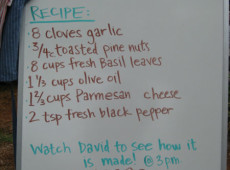 RECIPE:
· 8 cloves garlic
· 3/4 c toasted pine nuts
· 8 cups fresh Basil leaves
· 1 1/3 cups olive oil
· 1 2/3 cups Parmesan cheese
· 2 tsp fresh black pepper
Watch David to see how it
is made! @ 3pm